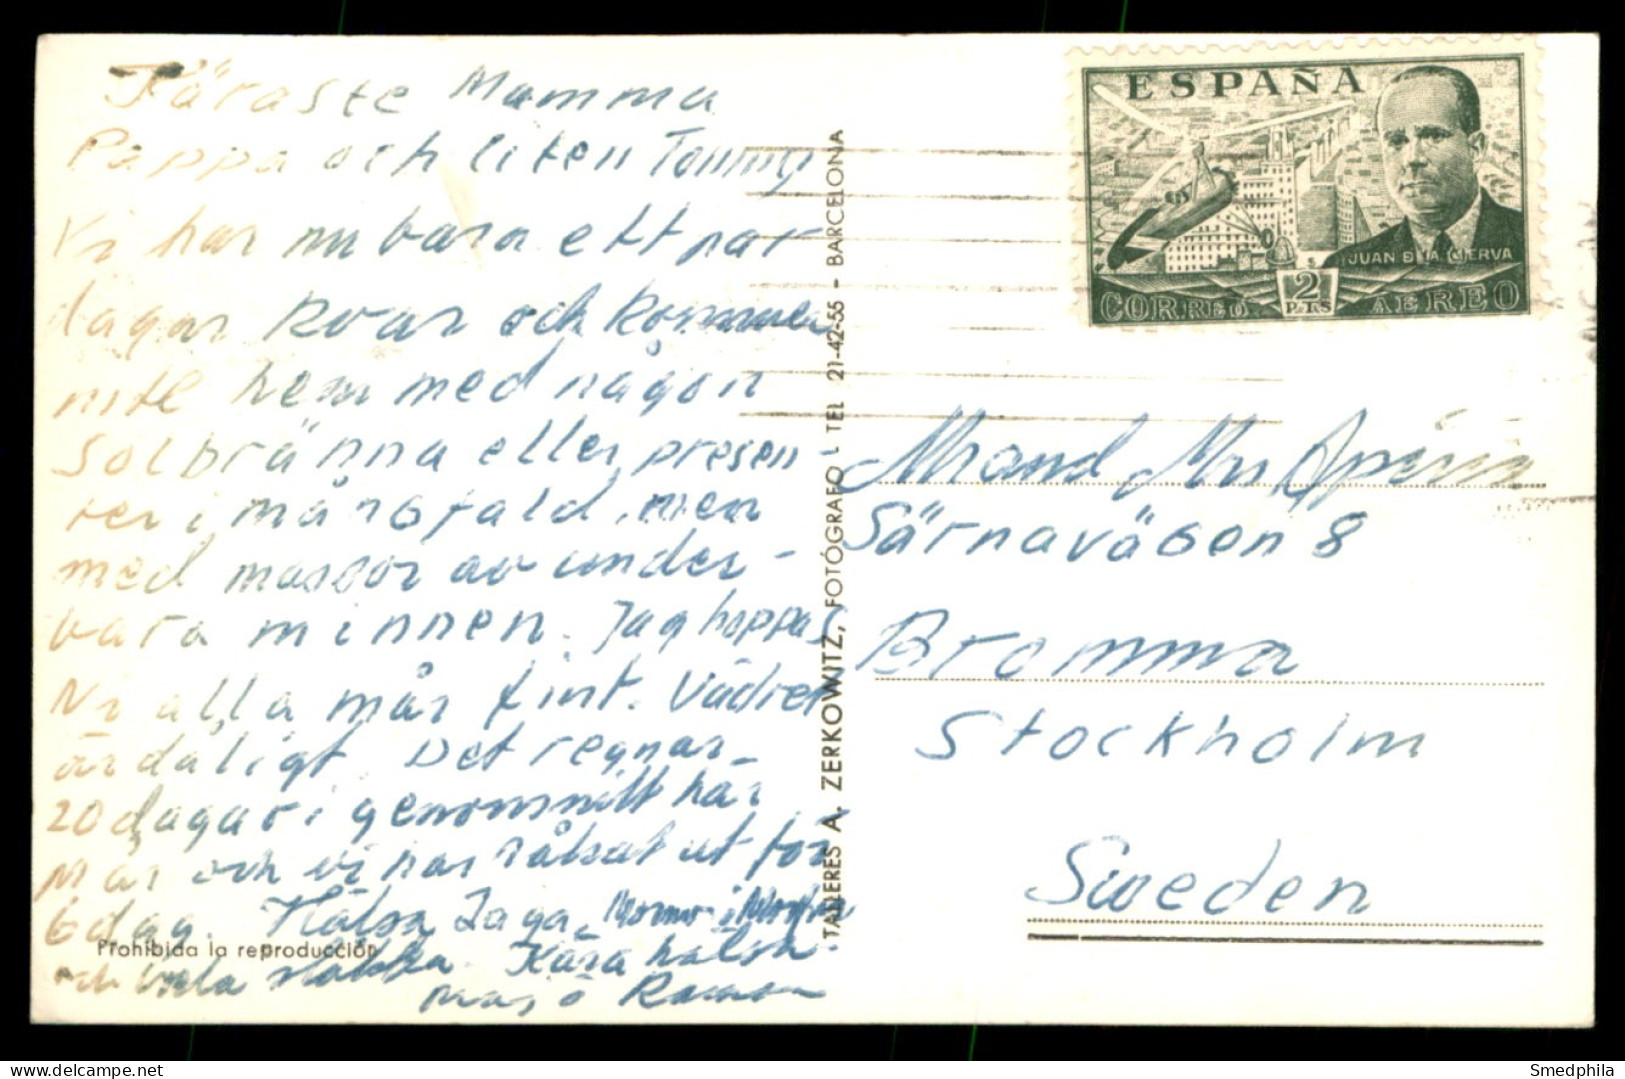 Käraste Mamma
Pappa och liten Tommy
Vi har nu bara ett par
dagar kvar och kommer
inte hem med någon
Solbränna eller presen-
ter i mångfald, men
med massor av under-
bara minnen. Jag hoppas
Ni alla mår fint. Vädret
är dåligt. Det regnar
20 dagar i genomsnitt här
Mars och vi har råkat ut för
6 dag. Hälsa Zaga, Mormor
och hela släkten. Kära hälsn.
Majo Ramon
Prohibida la reproducción
TALLERES A. ZERKOWITZ, FOTÓGRAFO - TEL 21-42-55 - BARCELONA
ESPAÑA
JUAN DE LA CIERVA
2
PTS
CORREO AEREO
Särnavägen 8
Bromma
Stockholm
Sweden
Smedphila